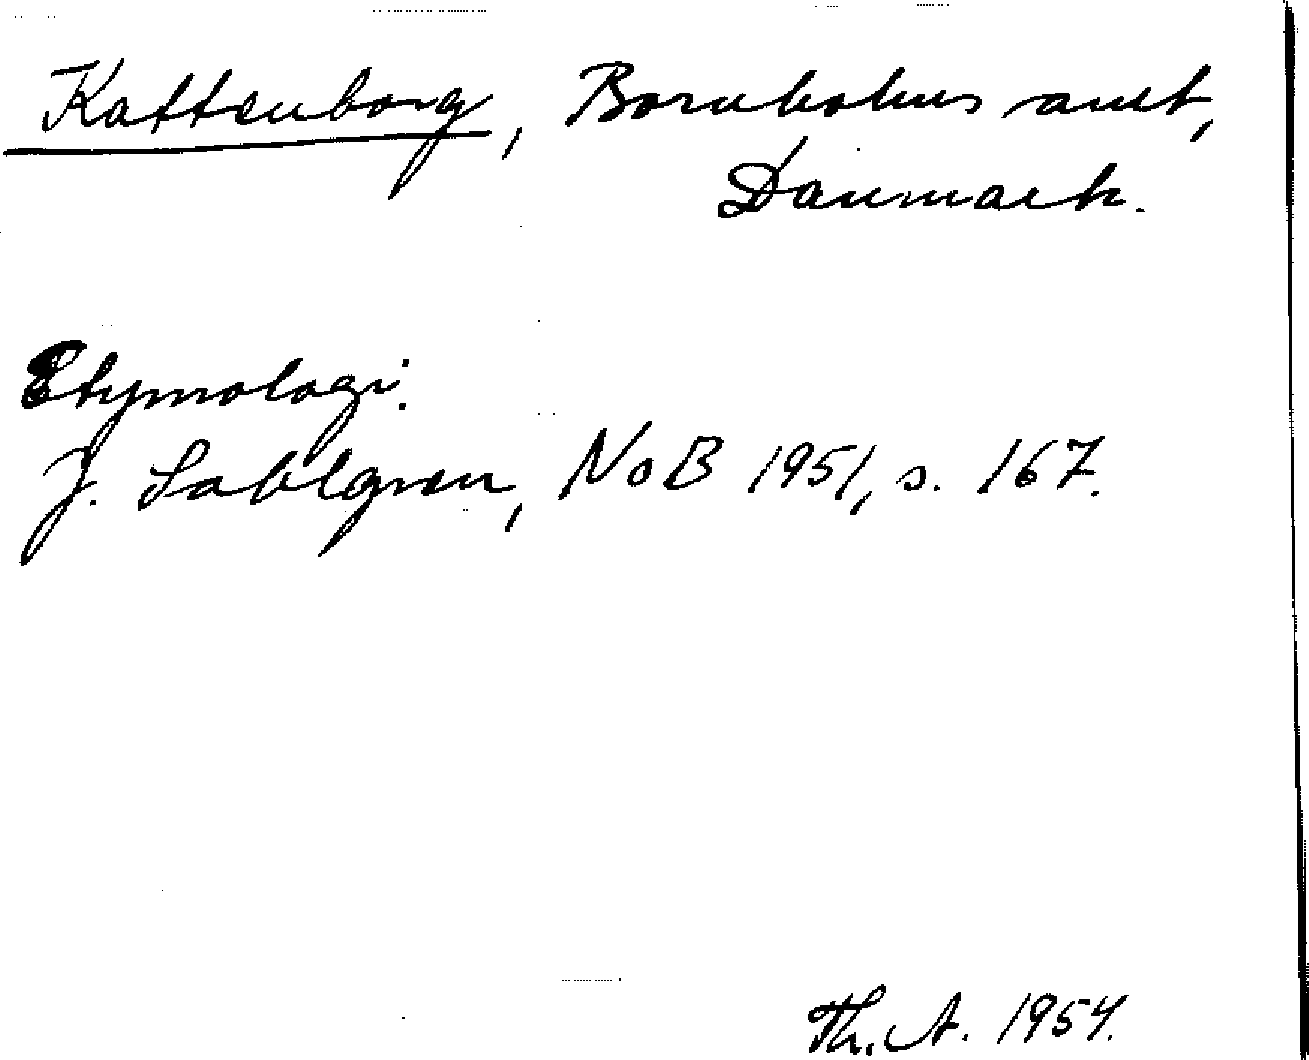 Kattenborg, Bornholms amt,
Danmark.
Etymologi:
J. Sahlgren, NoB 1951, s. 167.
Th. A. 1954.